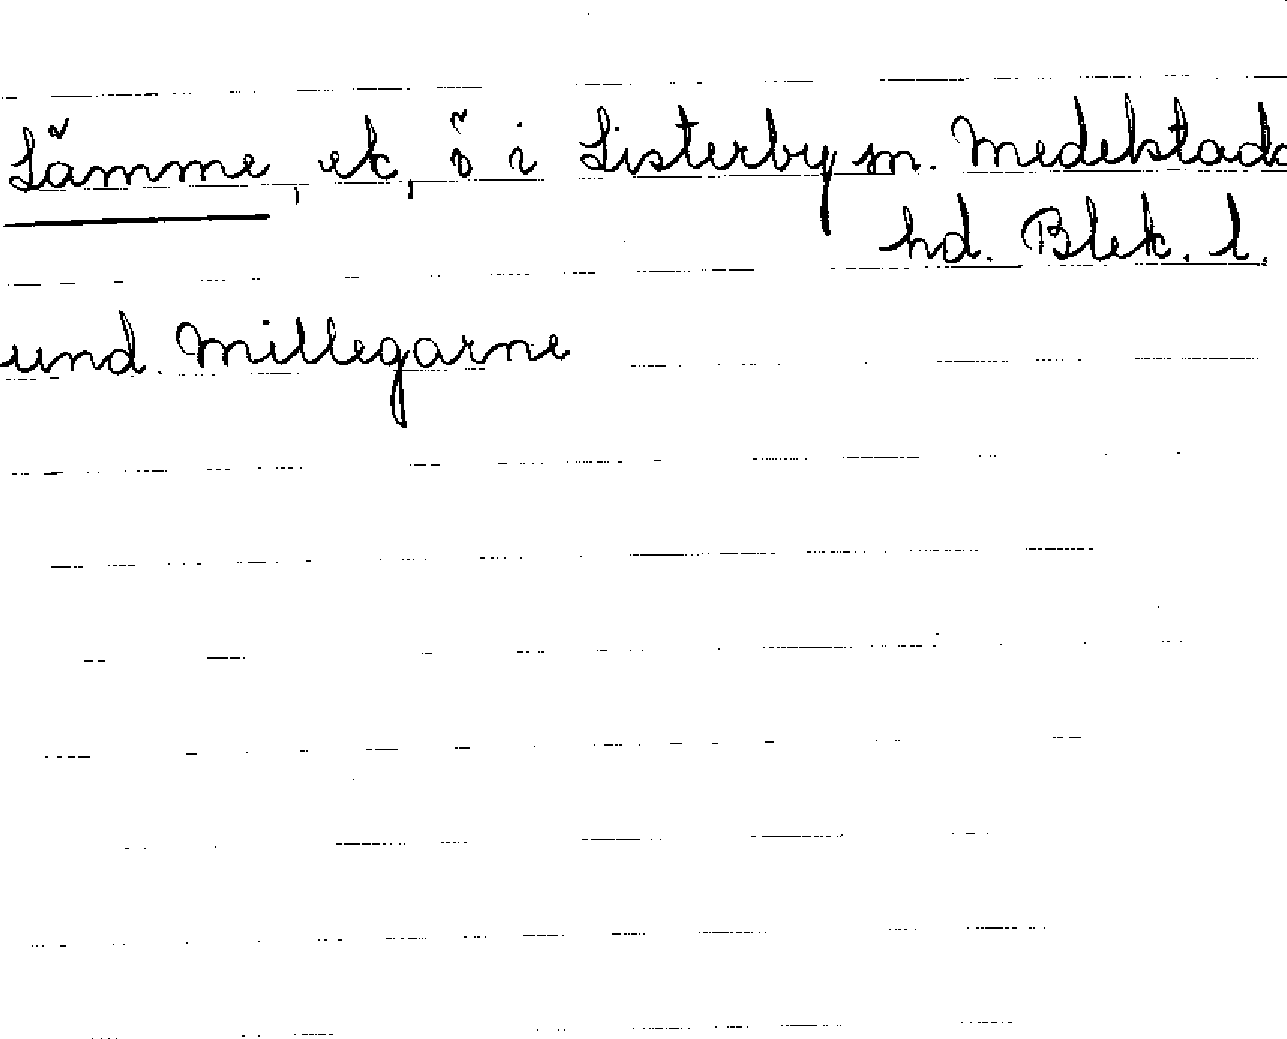 Lämme, ek, ö i Listerby sn. Medelstads
hd. Blek. l.
und. Millegarne